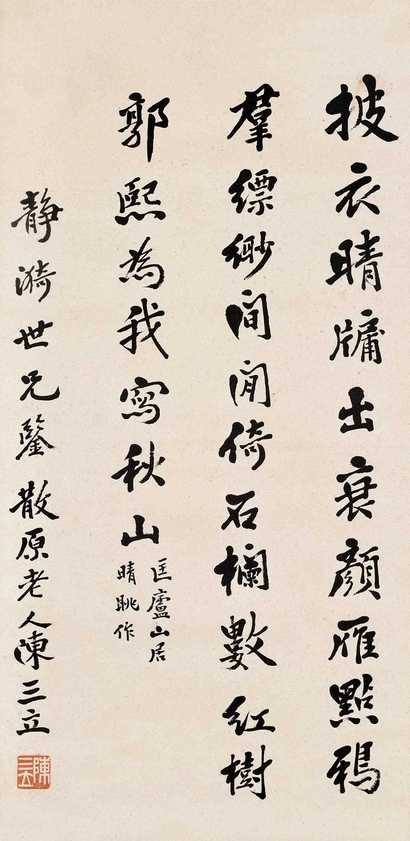 披衣晴牖出衰顏雁點鴉
羣縹緲間閒倚石欄數紅樹
郭熙為我寫秋山
匡廬山居
晴眺作
靜漪世兄鑒散原老人陳三立
陳三立